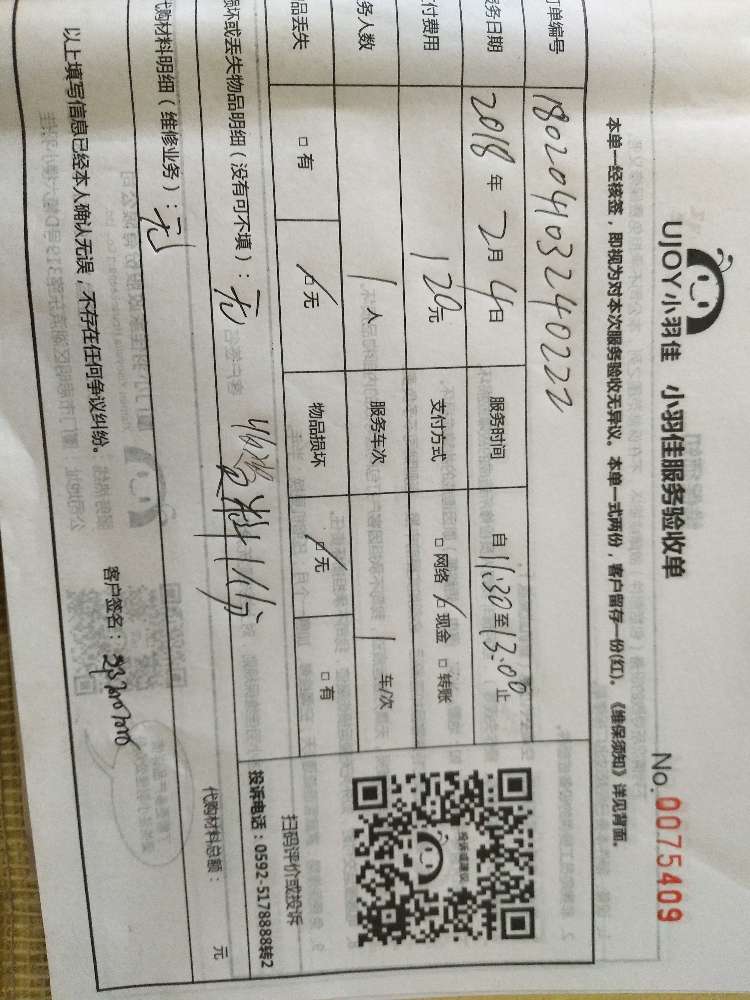 UJOY小羽佳 小羽佳服务验收单
No.0075409
本单一经核签，即视为对本次服务验收无异议。本单一式两份，客户留存一份(红)。《维保须知》详见背面。
订单编号 18020410324022
服务日期 2018年2月4日 服务时间 自11:30至13:00止
支付费用 120元 支付方式 □网络 □现金 □转账
服务人数 1人 服务车次 1车/次
物品丢失 □有 □无 物品损坏 □无 □有
损坏或丢失物品明细（没有可不填）：无
代购材料明细（维修业务）：无
代购材料总额： 元
扫码评价或投诉
投诉电话：0592-5178888转2
以上填写信息已经本人确认无误，不存在任何争议纠纷。
客户签名：